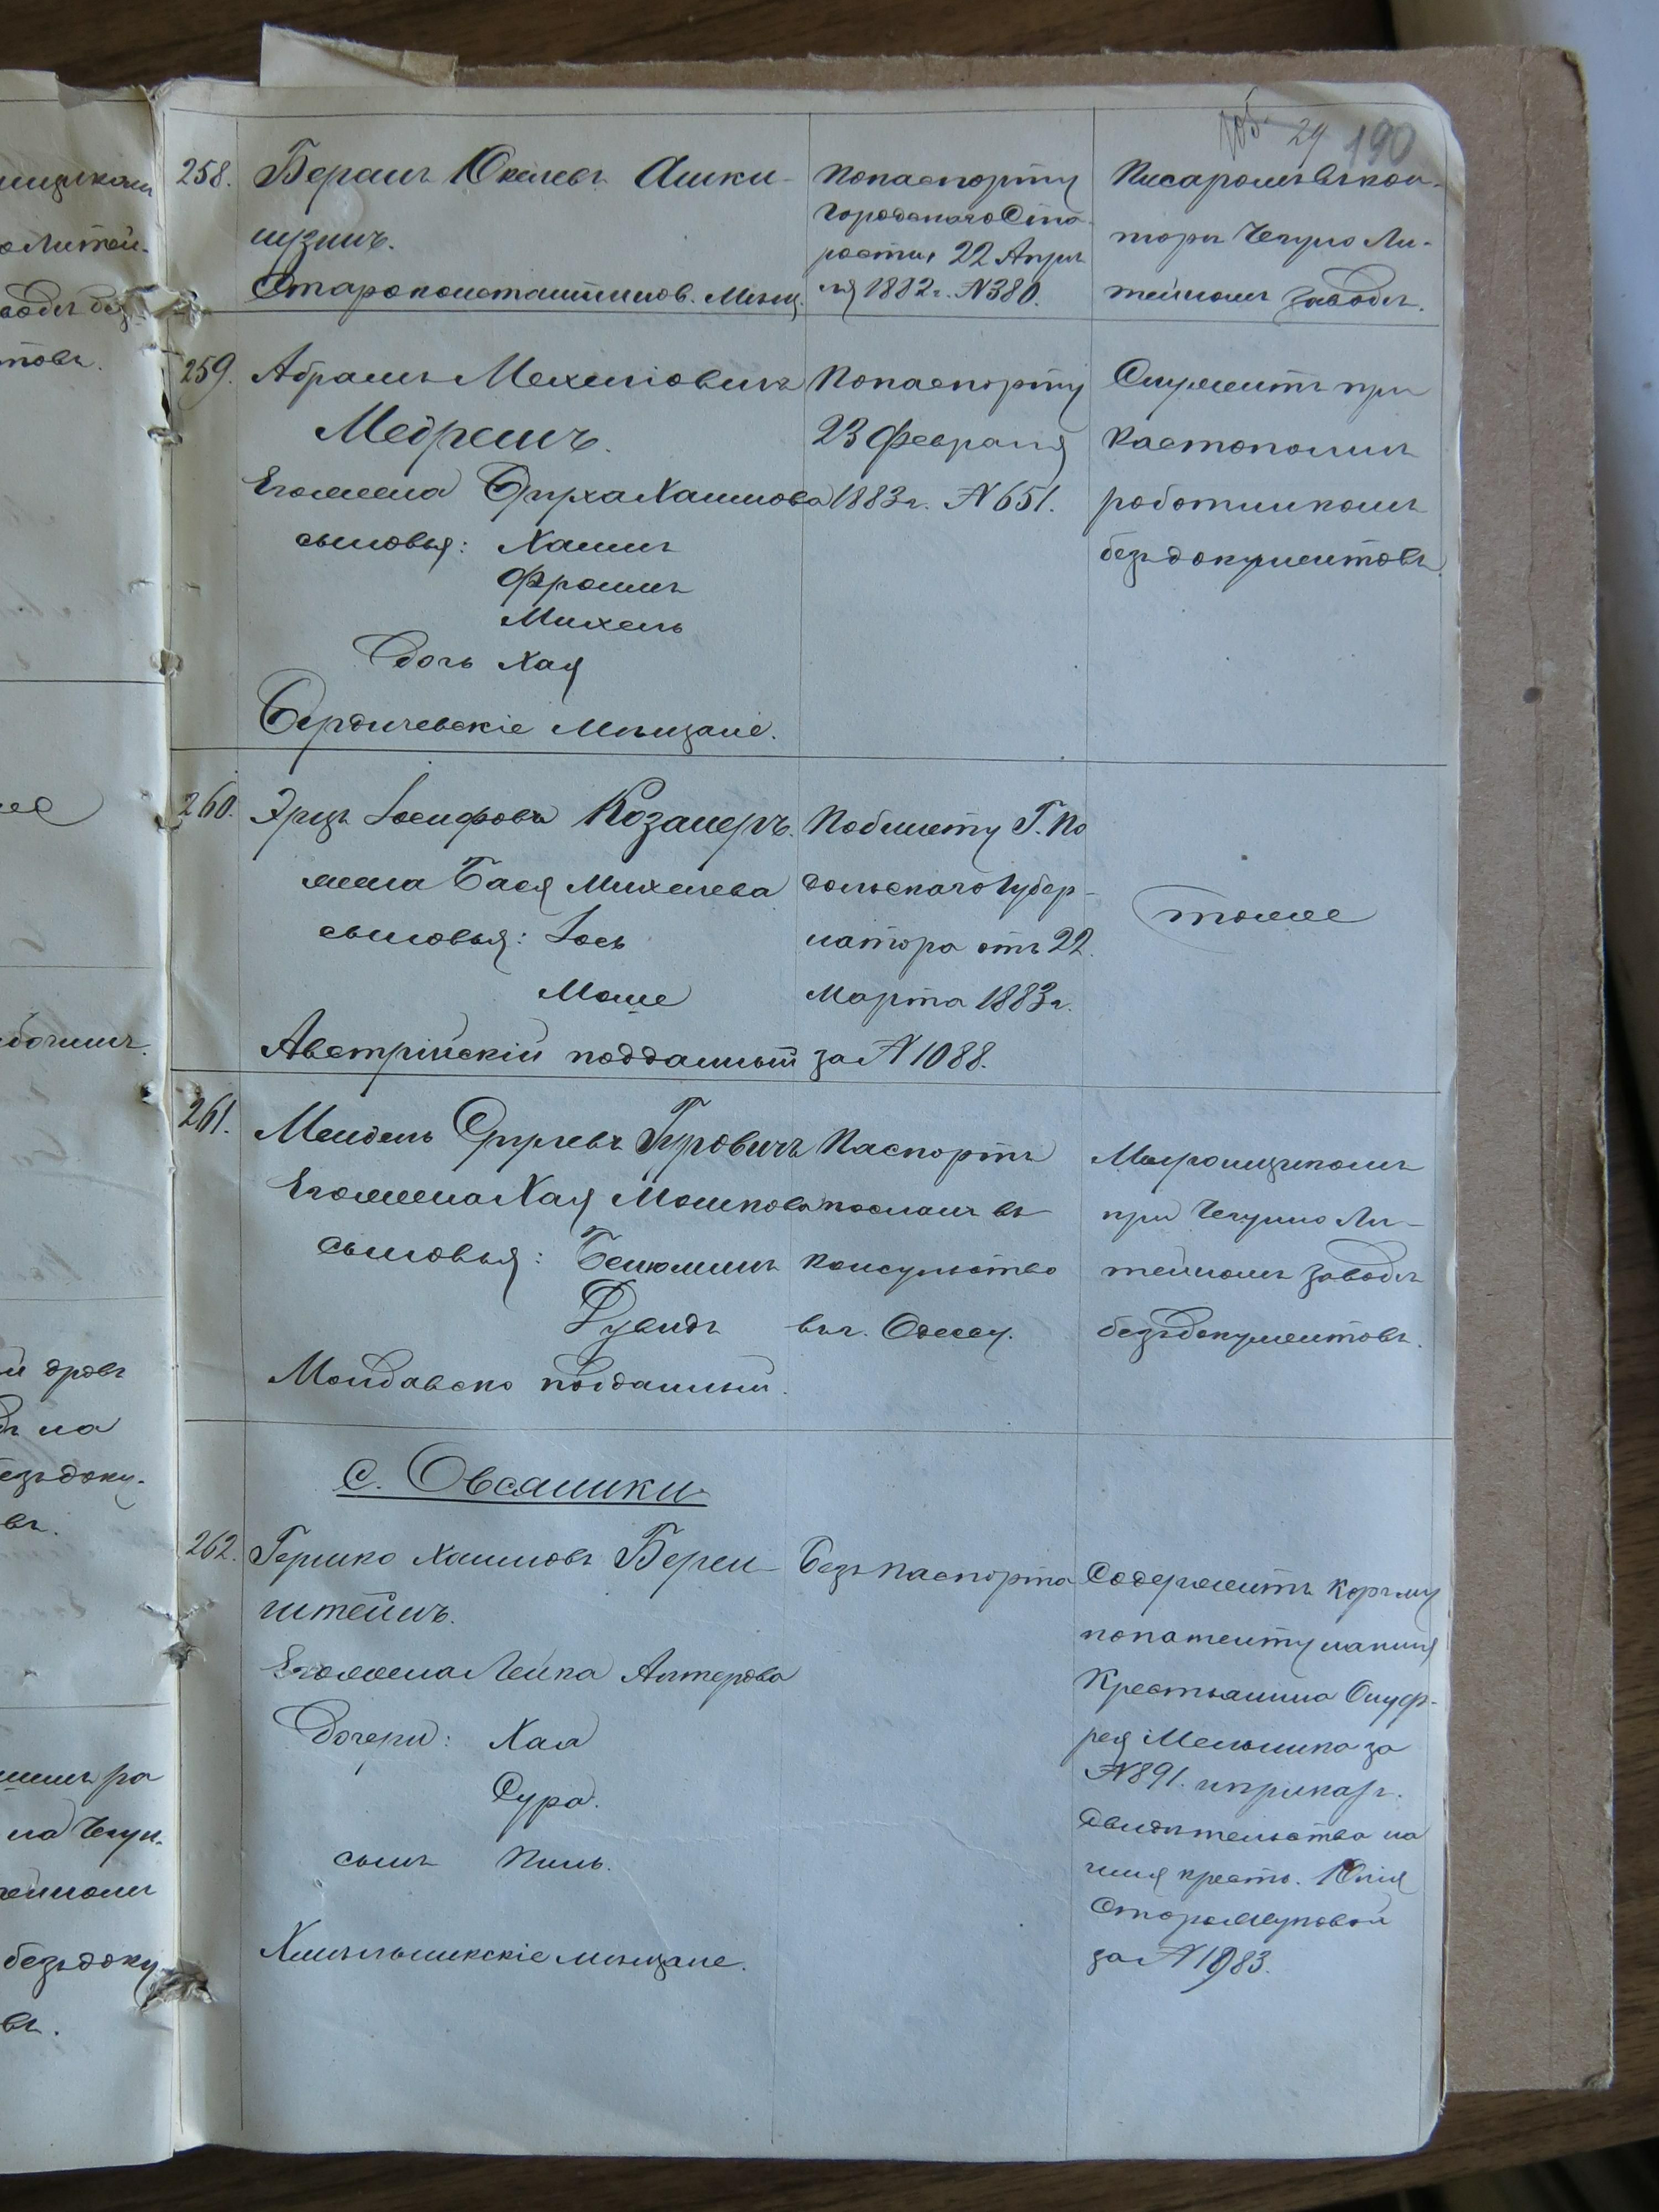 29 190
258. Берашъ Юкелевъ Ашки-
нузинъ.
Староконстантинов. Мѣщ.
По паспорту
Городскаго Ста-
росты, 22 Апрѣ-
ля 1882 г. N 380.
Писаромъ въ кон-
торѣ Чегуно Ли-
тейномъ заводѣ.
259. Абрамъ Мехелювичъ
Медрешъ.
Его жена Сурха Хаимова
сыновья: Хаимъ
Фроимъ
Михель
Дочь Хая
Бердичевскіе Мѣщане.
По паспорту
23 Февраля
1883 г. N 651.
Служитъ при
Костопомнъ
работникомъ
безъ документовъ
260. Эрезъ Іосифовъ Козанеръ.
жена Бася Михелева
сыновья: Іось
Моше
Австрійскій подданный
По билету Г. По
дольскаго Губер-
натора отъ 22
Марта 1883 г.
за N 1088.
тоже
261. Мендель Срулевъ Гуровичъ
Его жена Хая Мошкова
сыновья: Бенюминъ
Дувидъ
Молдавско подданный.
Паспортъ
посланъ въ
консульство
въ г. Одессу.
при Чегунно Ли-
тейномъ заводѣ
безъ документовъ.
С. Овсяники
262. Гершко Хаимовъ Берен-
штейнъ.
Его жена Лейка Алтерова
Дочери: Хая
Сура.
сынъ Пинь.
Хмѣльникскіе мѣщане.
Безъ паспорта
Содержитъ Корчму
по патенту на имя
Крестьянина Онуф-
рея Мельника за
N 891. и приказч.
свидѣтельства на
имя крестъ. Юлія
за N 1983.